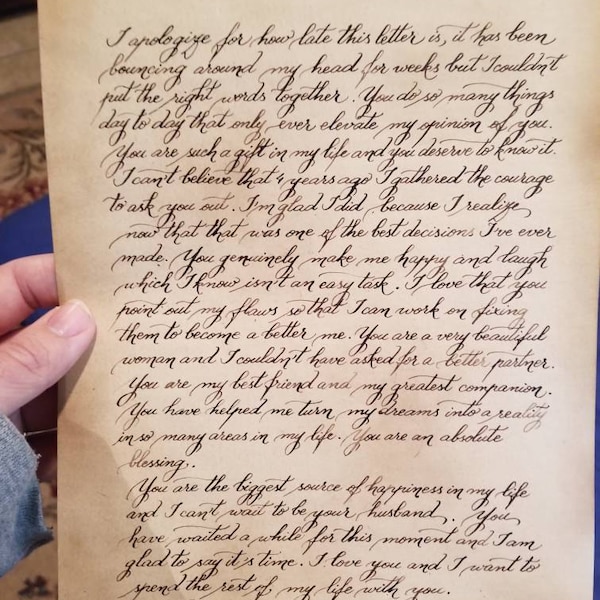 I apologize for how late this letter is, it has been
bouncing around my head for weeks but I couldn't
put the right words together. You do so many things
day to day that only ever elevate my opinion of you.
You are such a gift in my life and you deserve to know it.
I can't believe that 4 years ago I gathered the courage
to ask you out. I'm glad I did because I realize
now that that was one of the best decisions I've ever
made. You genuinely make me happy and laugh
which I know isn't an easy task. I love that you
point out my flaws so that I can work on fixing
them to become a better me. You are a very beautiful
woman and I couldn't have asked for a better partner.
You are my best friend and my greatest companion.
You have helped me turn my dreams into a reality
in so many areas in my life. You are an absolute
blessing.
You are the biggest source of happiness in my life
and I can't wait to be your husband. You
have waited a while for this moment and I am
glad to say it's time. I love you and I want to
spend the rest of my life with you.